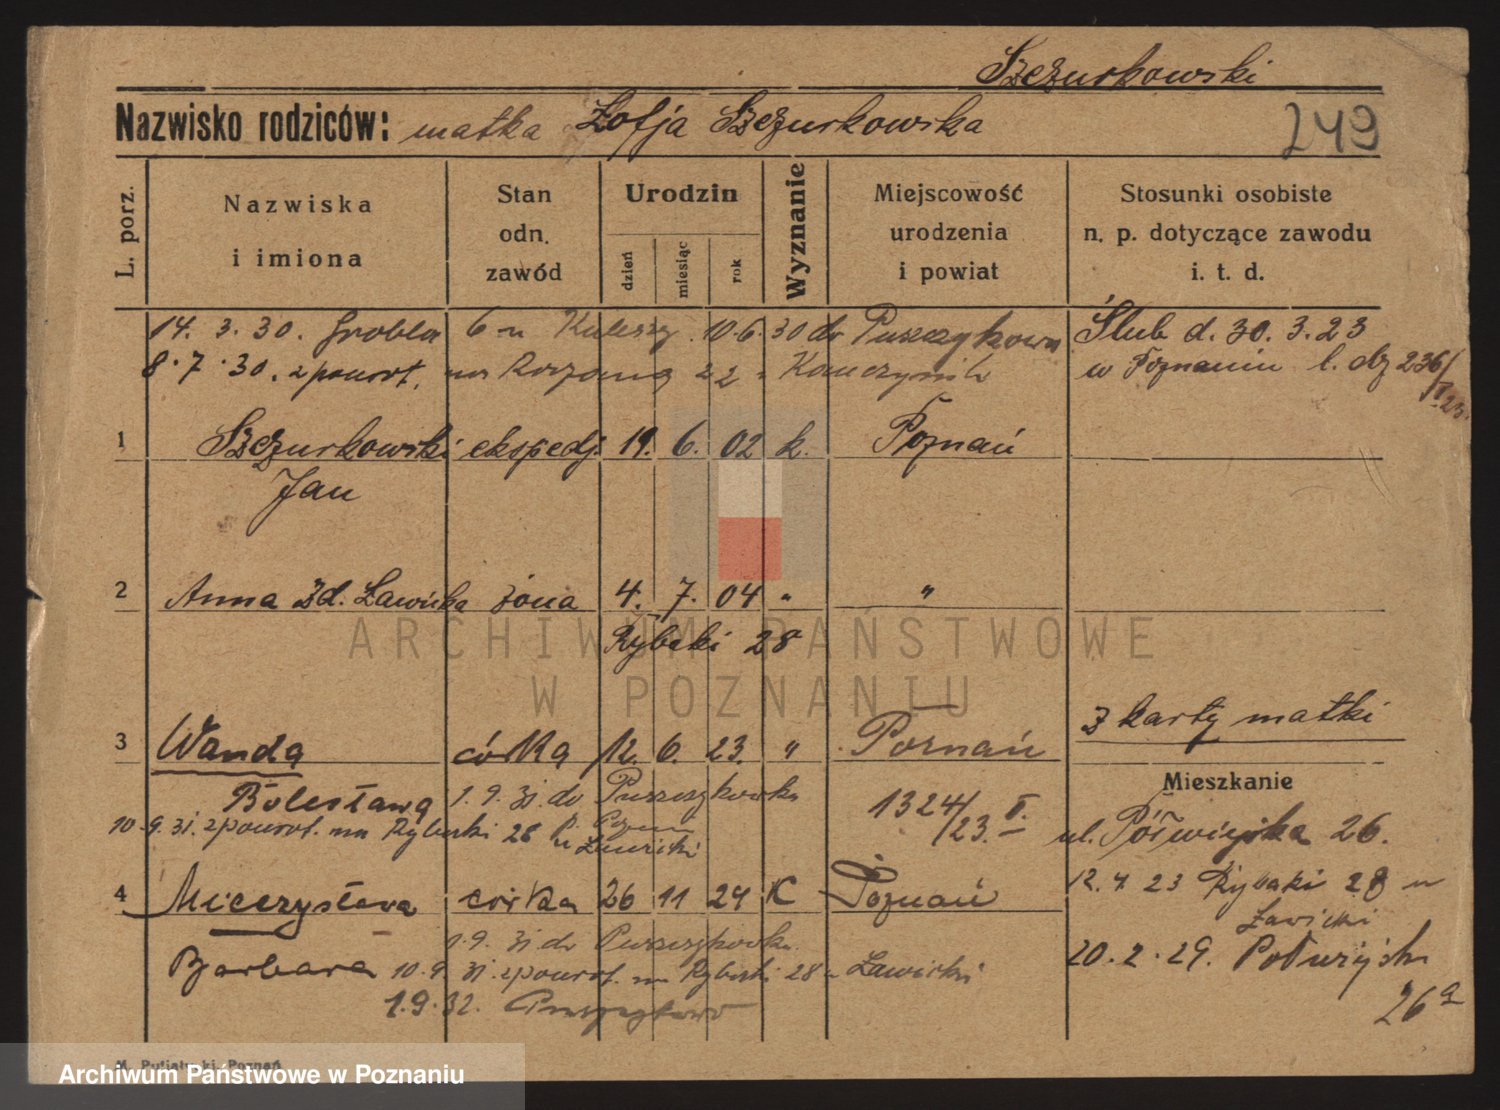 Szczurkowski
Nazwisko rodziców: matka Zofja Szczurkowska
249
L. porz.
Nazwiska i imiona
Stan odn. zawód
Urodzin
dzień
miesiąc
rok
Wyznanie
Miejscowość urodzenia i powiat
Stosunki osobiste n. p. dotyczące zawodu i. t. d.
14. 3. 30. Grobla 6 u 10.6.30 do Puszczykowa
Ślub d. 30. 3. 23
8.7.30. zpowrot. na 22
w Poznaniu l. dz 236/
I 23.
1 Szczurkowski ekspedj. 19. 6. 02 k. Poznań
Jan
2 Anna zd. Ławicka żona 4. 7. 04 " "
Rybaki 28
ARCHIWUM PAŃSTWOWE
W POZNANIU
z karty matki
3 Wanda córka 12. 6. 23. " Poznań
Mieszkanie
Bolesława 1.9.31. do Puszczykowka
1324/23. I.
ul. Półwiejska 26.
10.9.31. zpowrot. na Rybaki 28
4 Mieczysława córka 26 11 24 K Poznań
12. 4. 23 Rybaki 28 u
Ławicki
1.9.31 do Puszczykowka
Barbara 10.9 31. zpowrot. na Rybaki 28 u Ławicki
20. 2. 29. Półwiejska
26a
1.9.32. Puszczykowo
Poznań
Archiwum Państwowe w Poznaniu